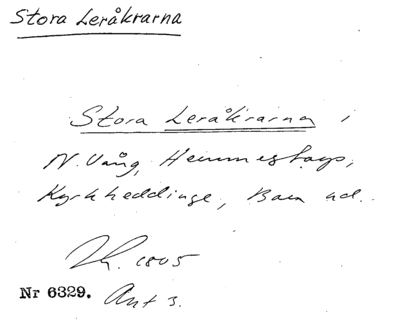 Stora Leråkrarna
Stora Leråkrarna i
N. Vång, Hemmestorps,
Kyrkheddinge, Bara hd.
1805
Nr 6329. Akt 3.